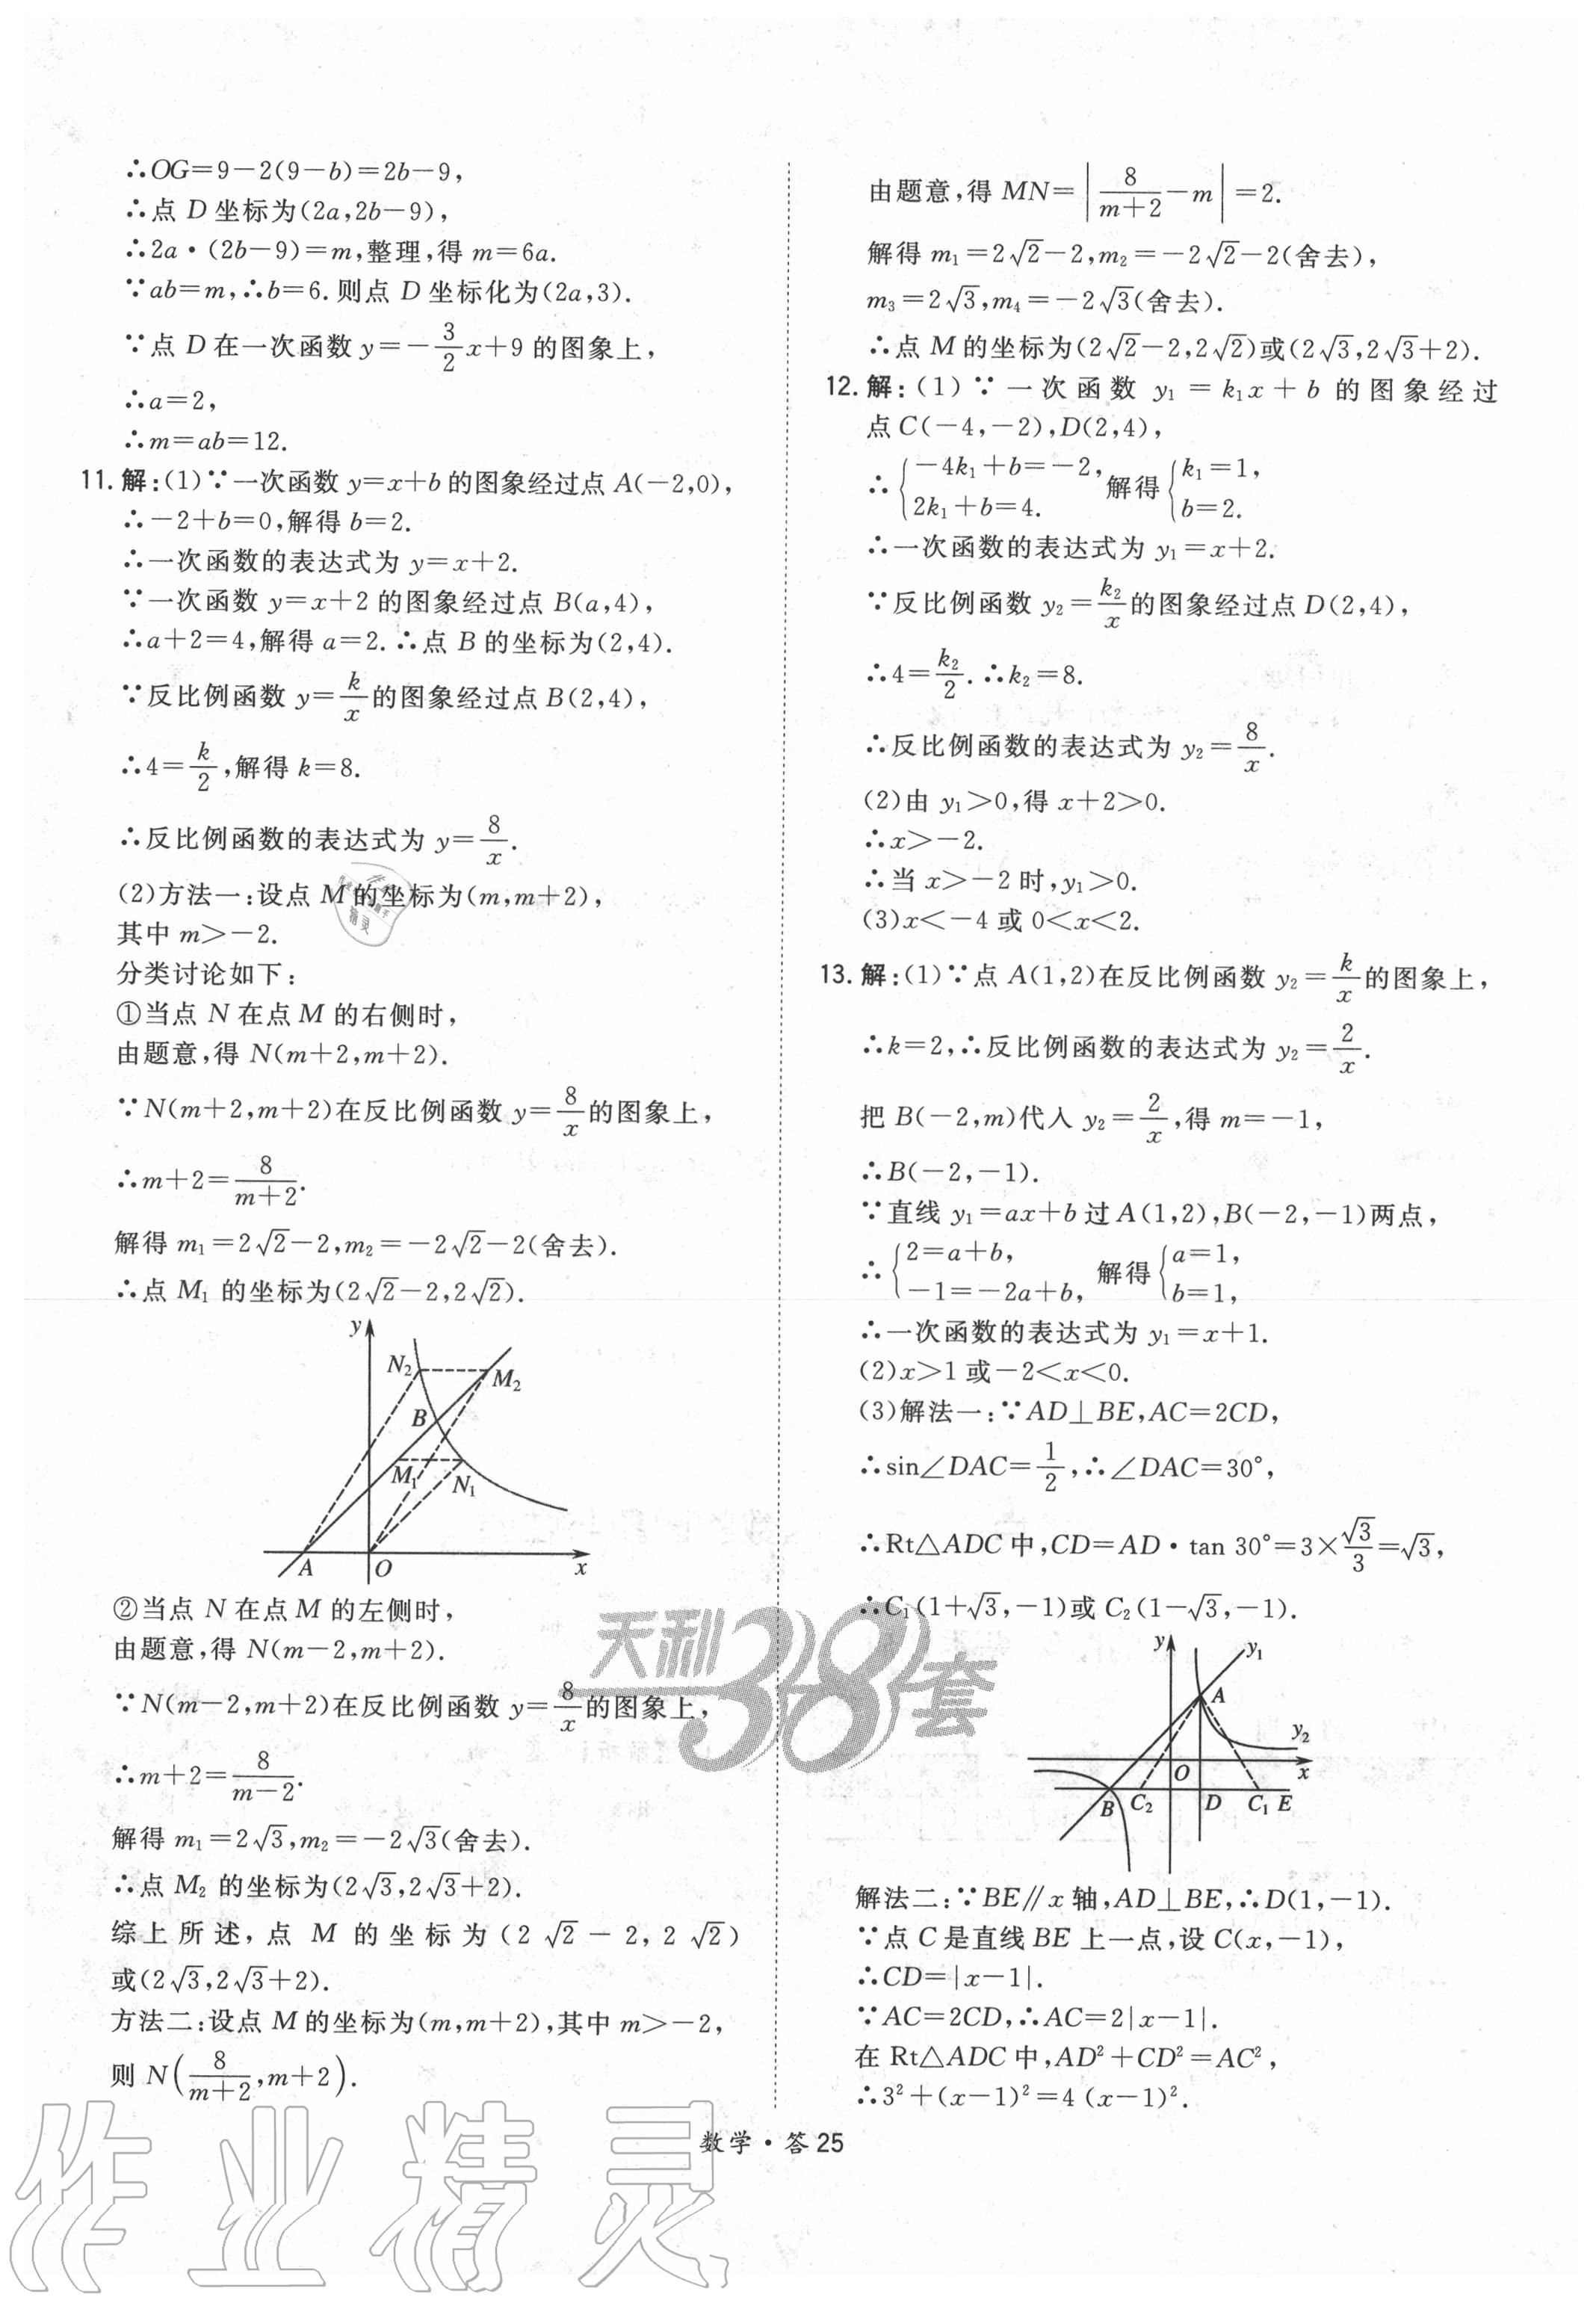 ∴OG=9−2(9−b)=2b−9,
∴点 D 坐标为(2a,2b−9),
∴2a·(2b−9)=m,整理,得 m=6a.
∵ab=m,∴b=6.则点 D 坐标化为(2a,3).
∵点 D 在一次函数 y=−3/2x+9 的图象上,
∴a=2,
∴m=ab=12.
11.解:(1)∵一次函数 y=x+b 的图象经过点 A(−2,0),
∴−2+b=0,解得 b=2.
∴一次函数的表达式为 y=x+2.
∵一次函数 y=x+2 的图象经过点 B(a,4),
∴a+2=4,解得 a=2.∴点 B 的坐标为(2,4).
∵反比例函数 y=k/x的图象经过点 B(2,4),
∴4=k/2,解得 k=8.
∴反比例函数的表达式为 y=8/x.
(2)方法一:设点 M 的坐标为(m,m+2),
其中 m>−2.
分类讨论如下:
①当点 N 在点 M 的右侧时,
由题意,得 N(m+2,m+2).
∵N(m+2,m+2)在反比例函数 y=8/x的图象上,
∴m+2=8/(m+2).
解得 m₁=2√2−2,m₂=−2√2−2(舍去).
∴点 M₁ 的坐标为(2√2−2,2√2).
y
N₂
M₂
B
M₁
N₁
A
O
x
②当点 N 在点 M 的左侧时,
由题意,得 N(m−2,m+2).
∵N(m−2,m+2)在反比例函数 y=8/x的图象上,
∴m+2=8/(m−2).
解得 m₁=2√3,m₂=−2√3(舍去).
∴点 M₂ 的坐标为(2√3,2√3+2).
综上所述,点 M 的坐标为(2√2−2,2√2)
或(2√3,2√3+2).
方法二:设点 M 的坐标为(m,m+2),其中 m>−2,
则 N(8/(m+2),m+2).
由题意,得 MN=|8/(m+2)−m|=2.
解得 m₁=2√2−2,m₂=−2√2−2(舍去),
m₃=2√3,m₄=−2√3(舍去).
∴点 M 的坐标为(2√2−2,2√2)或(2√3,2√3+2).
12.解:(1)∵一次函数 y₁=k₁x+b 的图象经过
点 C(−4,−2),D(2,4),
∴{−4k₁+b=−2, 2k₁+b=4. 解得{k₁=1, b=2.
∴一次函数的表达式为 y₁=x+2.
∵反比例函数 y₂=k₂/x的图象经过点 D(2,4),
∴4=k₂/2.∴k₂=8.
∴反比例函数的表达式为 y₂=8/x.
(2)由 y₁>0,得 x+2>0.
∴x>−2.
∴当 x>−2 时,y₁>0.
(3)x<−4 或 0<x<2.
13.解:(1)∵点 A(1,2)在反比例函数 y₂=k/x的图象上,
∴k=2,∴反比例函数的表达式为 y₂=2/x.
把 B(−2,m)代入 y₂=2/x,得 m=−1,
∴B(−2,−1).
∵直线 y₁=ax+b 过 A(1,2),B(−2,−1)两点,
∴{2=a+b, −1=−2a+b, 解得{a=1, b=1,
∴一次函数的表达式为 y₁=x+1.
(2)x>1 或−2<x<0.
(3)解法一:∵AD⊥BE,AC=2CD,
∴sin∠DAC=1/2,∴∠DAC=30°,
∴Rt△ADC 中,CD=AD·tan 30°=3×√3/3=√3,
∴C₁(1+√3,−1)或 C₂(1−√3,−1).
y
y₁
A
y₂
O
x
B
C₂
D
C₁
E
解法二:∵BE∥x 轴,AD⊥BE,∴D(1,−1).
∵点 C 是直线 BE 上一点,设 C(x,−1),
∴CD=|x−1|.
∵AC=2CD,∴AC=2|x−1|.
在 Rt△ADC 中,AD²+CD²=AC²,
∴3²+(x−1)²=4(x−1)².
天利38套
数学·答25
作业精灵